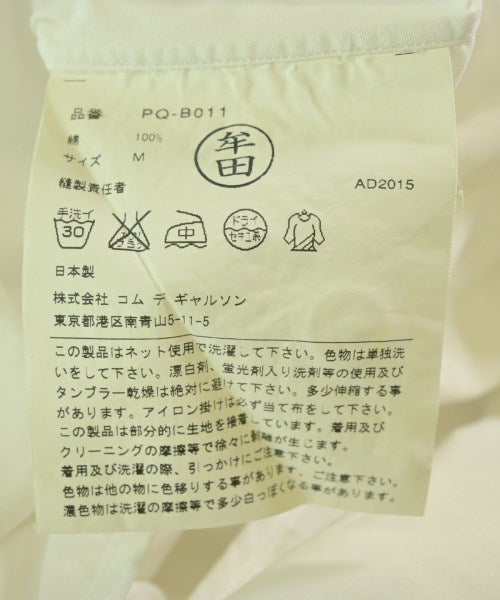 品番 PQ-B011
綿 100%
サイズ M
牟田
縫製責任者 AD2015
手洗イ 30 エンソ サラシ 中 ドライ セキユ系
日本製
株式会社 コム デ ギャルソン
東京都港区南青山5-11-5
この製品はネット使用で洗濯して下さい。色物は単独洗
いをして下さい。漂白剤、蛍光剤入り洗剤等の使用及び
タンブラー乾燥は絶対に避けて下さい。多少伸縮する事
があります。アイロン掛けは必ず当て布をして下さい。
この製品は部分的に生地を接着しています。着用及び
クリーニングの摩擦等で徐々に剥離が生じます。
着用及び洗濯の際、引っかけにご注意下さい。
色物は他の物に色移りする事があります、ご注意下さい。
濃色物は洗濯の摩擦等で多少白っぽくなる事があります。